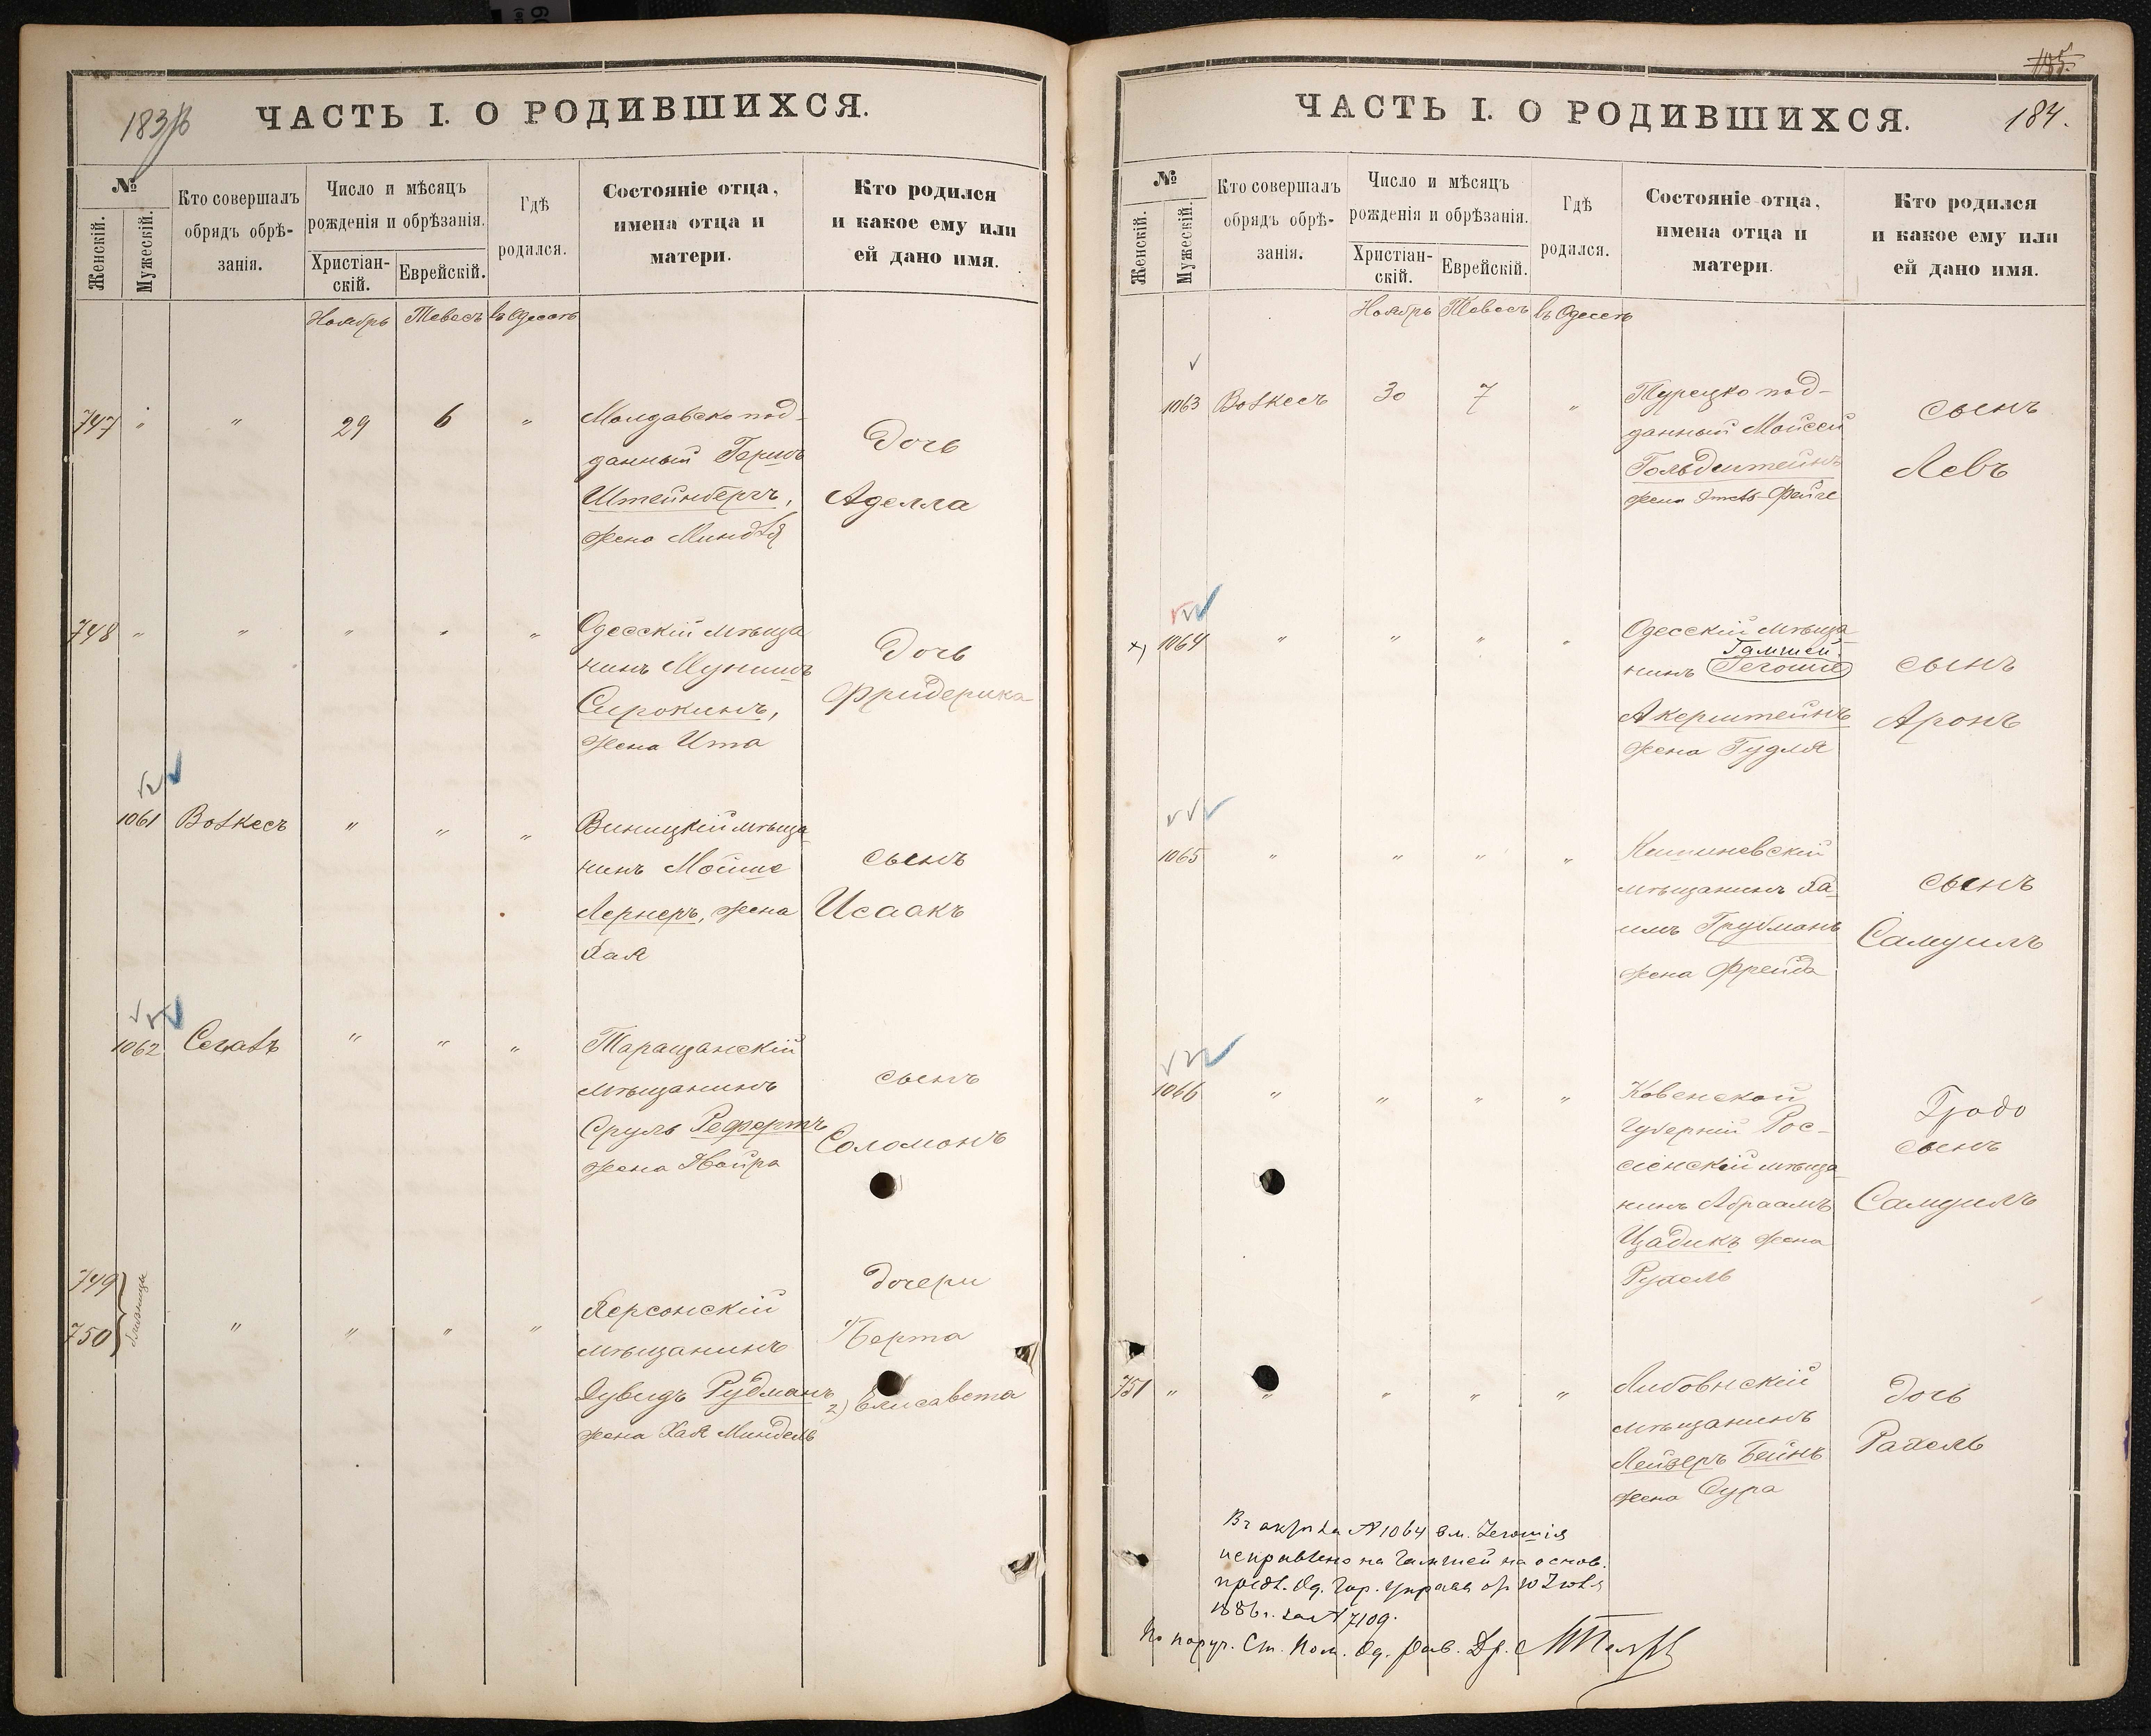 183
ЧАСТЬ I. О РОДИВШИХСЯ.
№
Женскій.
Мужескій.
Кто совершалъ
обрядъ обрѣ-
занія.
Число и мѣсяцъ
рожденія и обрѣзанія.
Христіан-
скій.
Еврейскій.
Гдѣ
родился.
Состояніе отца,
имена отца и
матери.
Кто родился
и какое ему или
ей дано имя.
Ноябрь Тевесъ въ Одессѣ
747 " " 29 6 "
Молдавско под-
данный Гершъ
Штейнбергъ,
жена Миндля
Дочь
Аделла
748 " " " " "
Одесскій мѣща
нинъ Мунишъ
Сирокинъ,
жена Ита
Дочь
Фридерика
1061 Волкесъ " " "
Виницкій мѣща
нинъ Мойше
Лернеръ, жена
Хая
сынъ
Исаакъ
1062 Сегалъ " " "
Таращанскій
мѣщанинъ
Сруль Рефертъ
жена Двойра
сынъ
Соломонъ
749
750
близницы
" " " "
Херсонскій
мѣщанинъ
Дувидъ Рудманъ
жена Хая Миндель
дочери
1) Берта
2) Елисавета
185.
184.
ЧАСТЬ I. О РОДИВШИХСЯ.
№
Женскій.
Мужескій.
Кто совершалъ
обрядъ обрѣ-
занія.
Число и мѣсяцъ
рожденія и обрѣзанія.
Христіан-
скій.
Еврейскій.
Гдѣ
родился.
Состояніе отца,
имена отца и
матери.
Кто родился
и какое ему или
ей дано имя.
Ноябрь Тевесъ въ Одессѣ
1063 Волкесъ 30 7 "
Турецко под-
данный Мойсей
Гольдштейнъ
жена Фейге
сынъ
Левъ
х) 1064 " " " "
Одесскій мѣща
Гамшей
нинъ Гегошіе
Акерштейнъ
жена Гудля
сынъ
Аронъ
1065 " " " "
Кишиневскій
мѣщанинъ Ха
имъ Грубманъ
жена Фрейда
сынъ
Самуилъ
1066 " " " "
Ковенской
Губерніи Рос-
сіенскій мѣща
нинъ Абраамъ
Цадикъ жена
Рухель
сынъ
Самуилъ
751 " " " " "
Либовнскій
мѣщанинъ
Лейзеръ Бейнъ
жена Сура
дочь
Рахель
Въ актѣ за № 1064 вм. Гегошія
исправлено на Гамшей на основ.
предл. Од. Гор. Управы от 10 Іюля
1886 г. за № 7109.
По поруч. Ст. Пом. Од. Рав. Др.